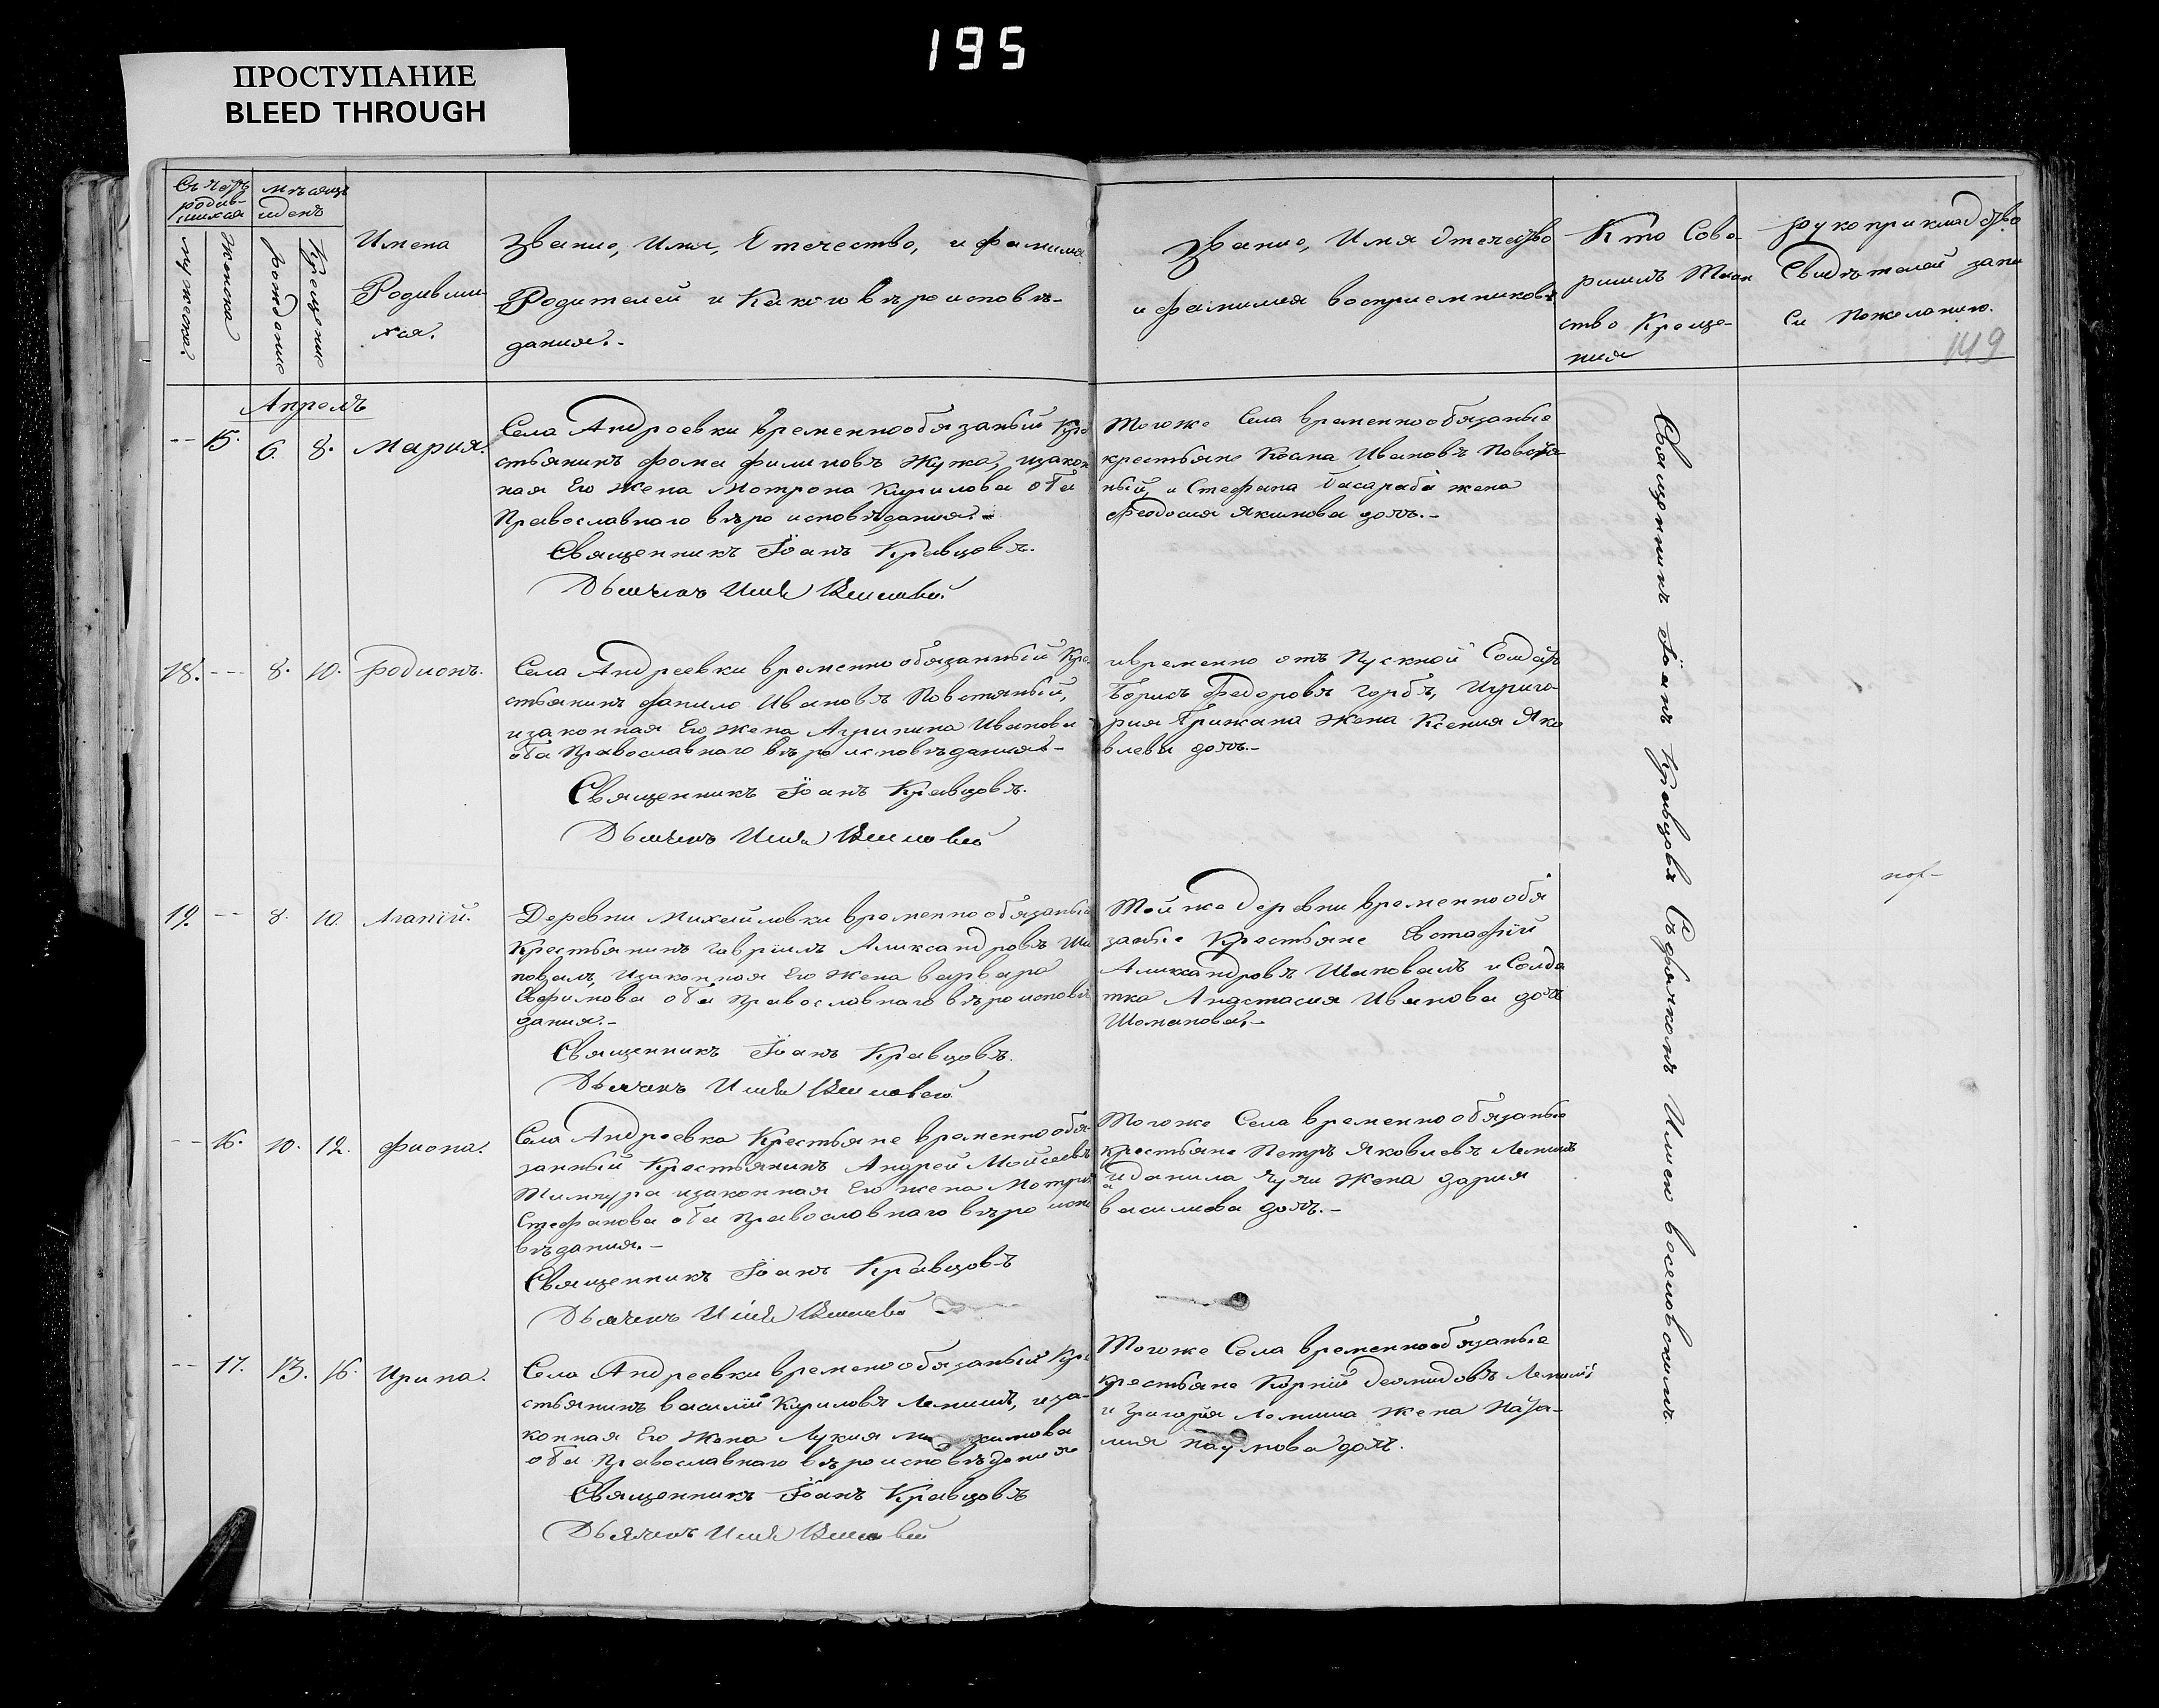 195
ПРОСТУПАНИЕ
BLEED THROUGH
Счетъ родив-
шихся
мужеска
женска
Мѣсяцъ
и день
рождение
крещение
Имена
Родивши-
хся.
Звание, Имя, Отечество, и фамилия
Родителей и Какого вѣроисповѣ-
дания.-
Звание, Имя Отечество
и фамилия восприемниковъ
Кто Сове-
ршилъ Таин
ство Креще-
ния
рукоприкладство
Свидѣтелей запи
си Пожеланию.
149
Апрель
-- 15. 6. 8. Мария.
Села Андреевки временнообязаный Кре
стьянинъ фома филиповъ Жужа, изакон
ная Его Жена Мотрона Кирилова оба
Православнаго вѣроисповѣдания.-
Священникъ Iоанъ Кравцовъ.
Дьячекъ Илия
Тогоже Села временнообязаные
крестьяне Ивановъ
ный, и Стефана Басараба жена
Феодосия Якимова дочь.-
18. -- 8. 10. Родионъ.
Села Андреевки временно обязанный Кре
стьянинъ Данило Ивановъ Повстяный,
изаконная Его жена Агрипина Иванова
оба Православнаго вѣроисповѣдания-
Священникъ Iоанъ Кравцовъ.
Дьячекъ Илия
ивременно отъ Пускной Солдатъ
Борисъ Федоровъ Горбъ, Игриго-
рия Грижана жена Ксения Яко
влева дочь.-
19. -- 8. 10. Агапiй.
Деревни Михайловки временно обязаный
Крестьянинъ Гаврiилъ Александровъ Ша
повалъ, Изаконная Его Жена варвара
Ефимова оба Православнаго вѣроисповѣ
дания.-
Священникъ Iоанъ Кравцовъ.
Дьячекъ Илия
Той же деревни временнообя
заные Крестьяне Евстафiй
Александровъ Шаповалъ и Солда
тка Анастасия Иванова дочь
Шоманова.-
-- 16. 10. 12. Фиона.
Села Андреевка Крестьяне временно обя-
занный Крестьянинъ Андрей Мойсеевъ
изаконная Его жена Мотрона
Стефанова оба православнаго вѣроиспо
вѣдания.-
Священникъ Iоанъ Кравцовъ
Дьячекъ Илия
Тогоже Села временно обязаные
крестьяне Петръ Яковлевъ
и данила жена дария
василиева дочь.-
-- 17. 13. 16. Ирина.
Села Андреевки временообязаный Кре
стьянинъ василiй Кириловъ Лемишъ, иза-
конная Его Жена Лукия
оба Православнаго вѣроисповѣдания
Священникъ Iоанъ Кравцовъ
Дьячекъ Илия
Тогоже Села временнообязаные
крестьяне Корнiй Демидовъ
и Григория Лемиша жена Ната-
лия Наумова дочь.
Священникъ Iоанъ Кравцовъ Съ дьячкомъ Илиею